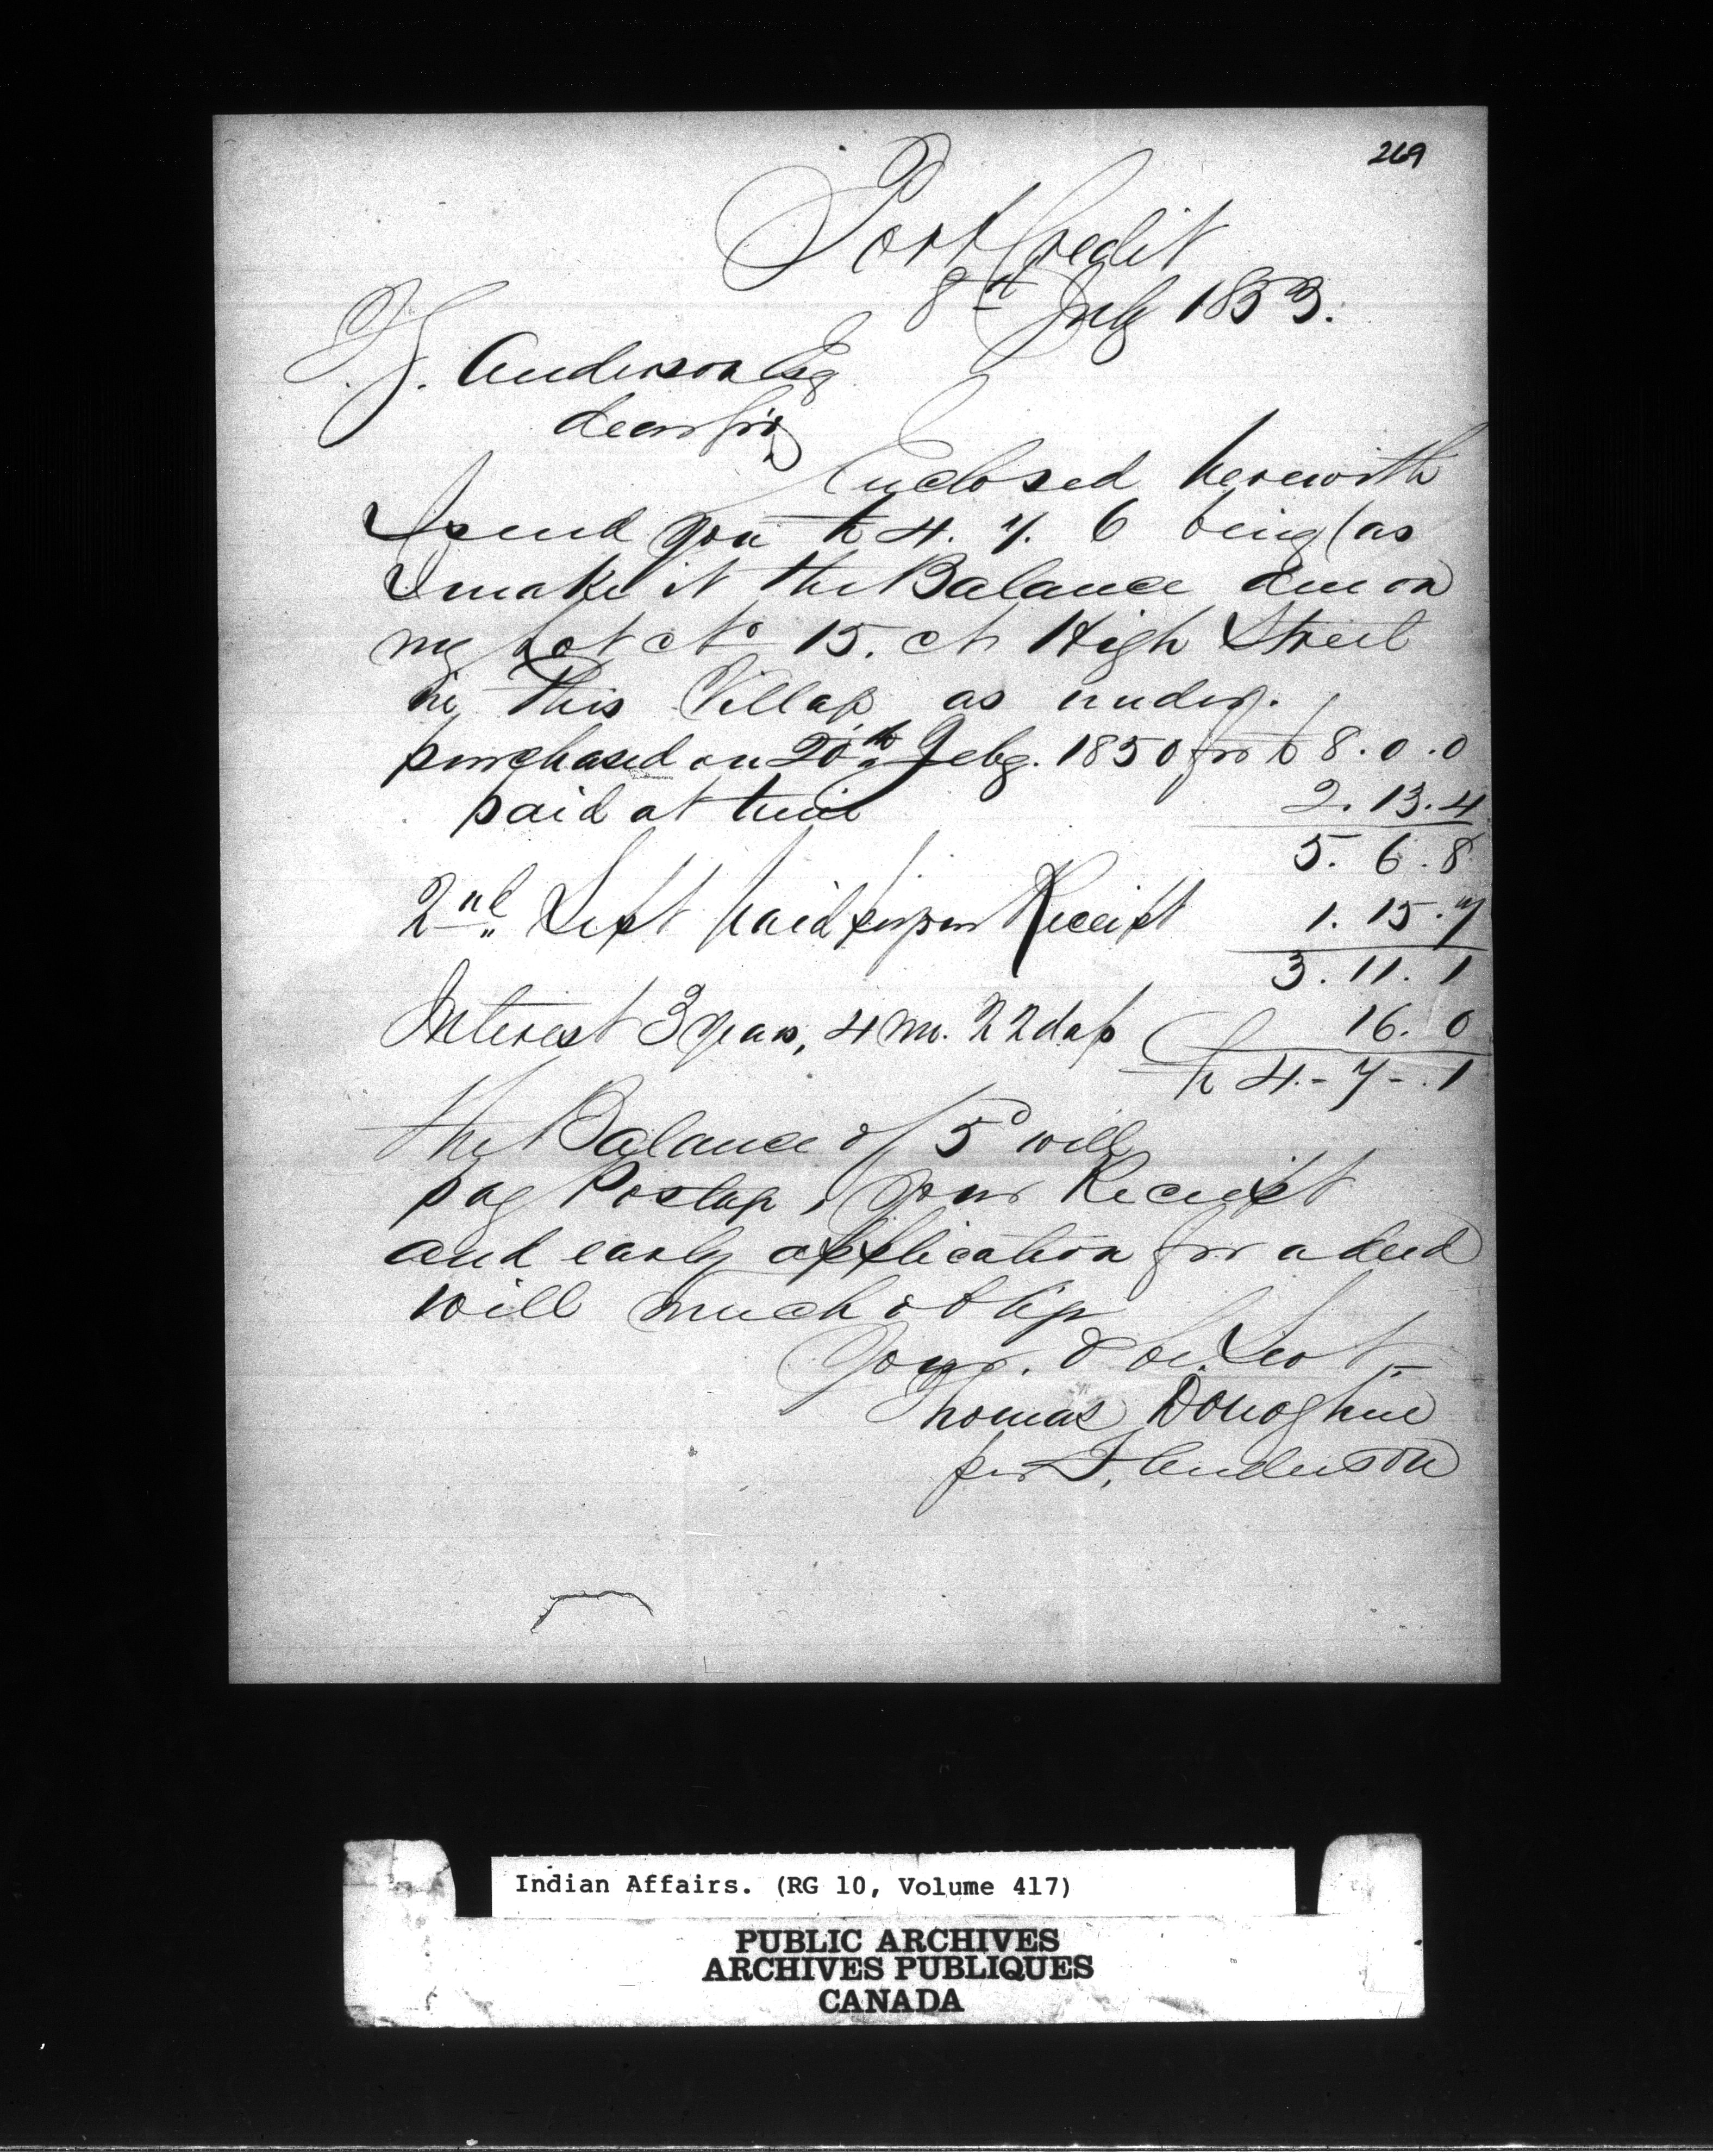 269
Port Credit
8th July 1853.
T. G. Anderson Esq
dear Sir
Enclosed herewith
I send you £ 4. 7. 6 being (as
I make it the Balance due on
my Lot No 15. N High Street
in This Village as under.
purchased on 20th Feby. 1850 for £ 8. 0. 0
paid at time 2. 13. 4
5. 6. 8
2nd Inst paid Receipt 1. 15. 7
3. 11. 1
Interest 3 years, 4 mo. 22 days 16. 0
£ 4. - 7 - . 1
The Balance of 5d will
pay Postage, your Receipt
and early application for a deed
will much oblige
Your. Ob. Servt
Thomas Donoghue
per T. Anderson
Indian Affairs. (RG 10, Volume 417)
PUBLIC ARCHIVES
ARCHIVES PUBLIQUES
CANADA